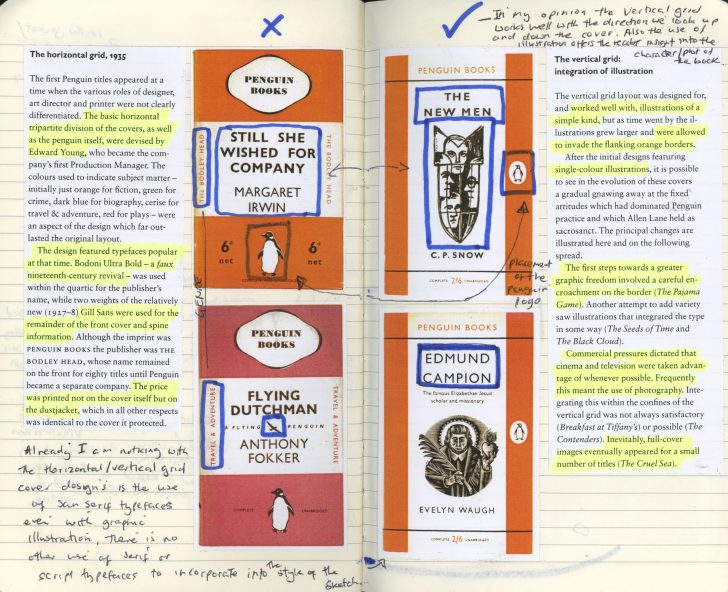 The horizontal grid, 1935
The first Penguin titles appeared at a
time when the various roles of designer,
art director and printer were not clearly
differentiated. The basic horizontal
tripartite division of the covers, as well
as the penguin itself, were devised by
Edward Young, who became the com-
pany's first Production Manager. The
colours used to indicate subject matter –
initially just orange for fiction, green for
crime, dark blue for biography, cerise for
travel & adventure, red for plays – were
an aspect of the design which far out-
lasted the original layout.
The design featured typefaces popular
at that time. Bodoni Ultra Bold – a faux
nineteenth-century revival – was used
within the quartic for the publisher's
name, while two weights of the relatively
new (1927–8) Gill Sans were used for the
remainder of the front cover and spine
information. Although the imprint was
PENGUIN BOOKS the publisher was THE
BODLEY HEAD, whose name remained
on the front for eighty titles until Penguin
became a separate company. The price
was printed not on the cover itself but on
the dustjacket, which in all other respects
was identical to the cover it protected.
Already I am noticing with
the Horizontal/vertical grid
cover design's is the use
of San Serif typefaces
even with graphic
illustration, there is no
other use of serif or
script typefaces to incorporate into the style of the
sketch.
PENGUIN
BOOKS
THE BODLEY HEAD
STILL SHE
WISHED FOR
COMPANY
MARGARET
IRWIN
THE BODLEY HEAD
6d
net
6d
net
GENRE
PENGUIN
BOOKS
TRAVEL & ADVENTURE
FLYING
DUTCHMAN
A FLYING PENGUIN
ANTHONY
FOKKER
TRAVEL & ADVENTURE
COMPLETE
UNABRIDGED
In my opinion the vertical grid
works well with the direction we look up
and down the cover. Also the use of
illustration offers the reader insight into the
character/plot of
the book.
PENGUIN BOOKS
THE
NEW MEN
C.P. SNOW
COMPLETE 2/6 UNABRIDGED
placement
of the
penguin
logo
PENGUIN BOOKS
EDMUND
CAMPION
The famous Elizabethan Jesuit
scholar and missionary
EVELYN WAUGH
COMPLETE 2/6 UNABRIDGED
The vertical grid:
integration of illustration
The vertical grid layout was designed for,
and worked well with, illustrations of a
simple kind, but as time went by the il-
lustrations grew larger and were allowed to
invade the flanking orange borders.
After the initial designs featuring
single-colour illustrations, it is possible
to see in the evolution of these covers
a gradual gnawing away at the fixed
attitudes which had dominated Penguin
practice and which Allen Lane held as
sacrosanct. The principal changes are
illustrated here and on the following
spread.
The first steps towards a greater
graphic freedom involved a careful en-
croachment on the border (The Pajama
Game). Another attempt to add variety
saw illustrations that integrated the type
in some way (The Seeds of Time and
The Black Cloud).
Commercial pressures dictated that
cinema and television were taken advan-
tage of whenever possible. Frequently
this meant the use of photography. Inte-
grating this within the confines of the
vertical grid was not always satisfactory
(Breakfast at Tiffany's) or possible (The
Contenders). Inevitably, full-cover
images eventually appeared for a small
number of titles (The Cruel Sea).